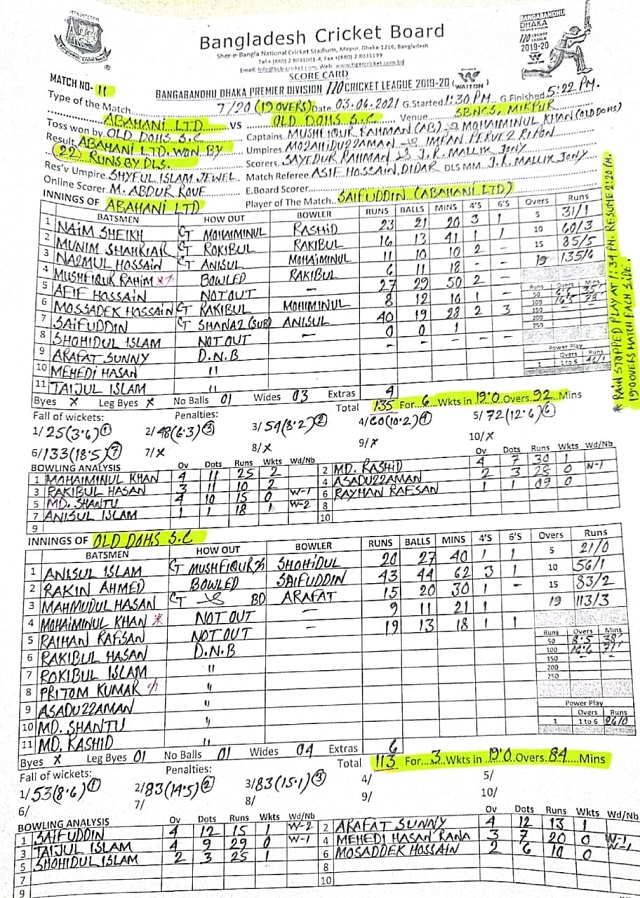 Bangladesh Cricket Board
Sher-e-Bangla National Cricket Stadium, Mirpur, Dhaka-1216, Bangladesh
SCORE CARD
BANGABANDHU DHAKA PREMIER DIVISION T20 CRICKET LEAGUE 2019-20 WALTON
BANGABANDHU DHAKA T20 CRICKET LEAGUE 2019-20
MATCH NO- 11
Type of the Match T/20 (19 OVERS) Date 03.06.2021 G.Started 1:30 PM. G.Finished 5:22 PM.
ABAHANI LTD VS OLD DOHS S.C Venue SBNCS, MIRPUR
Toss won by OLD DOHS S.C Captains MUSHFIQUR RAHMAN (AB) MOHAIMINUL KHAN (OLD DOHS)
Result ABAHANI LTD. WON BY 22 RUNS BY DLS. Umpires MOZAHIDUZZAMAN IMRAN PERVEZ RIPON
Scorers SAYEDUR RAHMAN J.R. MALLIK JONY
Res'v Umpire SHYFUL ISLAM JEWEL Match Referee ASIF HOSSAIN DIDAR DLS MM J.R. MALLIK JONY
Online Scorer M. ABDUR ROUF E.Board Scorer
INNINGS OF ABAHANI LTD Player of The Match SAIFUDDIN (ABAHANI LTD)
BATSMEN HOW OUT BOWLER RUNS BALLS MINS 4'S 6'S Overs Runs
1 NAIM SHEIKH CT MOHAIMINUL RASHID 23 21 20 3 1 5 31/1
2 MUNIM SHAHRIAR CT ROKIBUL RAKIBUL 16 13 41 1 1 10 60/3
3 NAZMUL HOSSAIN CT ANISUL MOHAIMINUL 11 10 10 2 - 15 85/5
4 MUSHFIQUR RAHIM *† BOWLED RAKIBUL 6 11 18 - - 19 135/6
5 AFIF HOSSAIN NOT OUT — 27 29 50 2 -
6 MOSSADEK HOSSAIN CT RAKIBUL MOHIMINUL 8 12 16 1 -
7 SAIFUDDIN CT SHANAZ (SUB) ANISUL 40 19 28 2 3
8 SHOHIDUL ISLAM NOT OUT — 0 0 1
9 ARAFAT SUNNY D.N.B - - - - -
10 MEHEDI HASAN "
11 TAIJUL ISLAM "
Runs Overs Mins
50
100
150
200
250
Power Play
Overs Runs
1 1 to 6
Byes X Leg Byes X No Balls 01 Wides 03 Extras 4
Total 135 For 6 Wkts in 19.0 Overs 92 Mins
* RAIN STOPPED PLAY AT 1:34 PM. RESUME 2:20 PM. 19 OVERS MATCH EACH SIDE.
Fall of wickets: Penalties:
1/ 25 (3.6) ① 2/ 48 (6.3) ③ 3/ 54 (8.2) ② 4/ 60 (10.2) ④ 5/ 72 (12.6) ⑥
6/ 133 (18.5) ⑦ 7/ X 8/ X 9/ X 10/ X
BOWLING ANALYSIS Ov Dots Runs Wkts Wd/Nb Ov Dots Runs Wkts Wd/Nb
1 MAHAIMINUL KHAN 4 11 25 2 2 MD. RASHID 4 7 30 1
3 RAKIBUL HASAN 3 11 10 2 4 ASADUZZAMAN 3 2 28 0 N-1
5 MD. SHANTU 4 10 15 0 W-1 6 RAYHAN RAFSAN 1 1 09 0
7 ANISUL ISLAM 1 1 18 1 W-2 8
9 10
INNINGS OF OLD DOHS S.C
BATSMEN HOW OUT BOWLER RUNS BALLS MINS 4'S 6'S Overs Runs
1 ANISUL ISLAM CT MUSHFIQUR SHOHIDUL 20 27 40 1 1 5 21/0
2 RAKIN AHMED BOWLED SAIFUDDIN 43 44 62 3 1 10 56/1
3 MAHMUDUL HASAN CT & BD ARAFAT 15 20 30 1 - 15 83/2
4 MOHAIMINUL KHAN * NOT OUT — 9 11 21 1 19 113/3
5 RAIHAN RAFSAN NOT OUT — 19 13 18 1 1
6 RAKIBUL HASAN D.N.B
7 ROKIBUL ISLAM "
8 PRITOM KUMAR † "
9 ASADUZZAMAN "
10 MD. SHANTU "
11 MD. RASHID "
Runs Overs Mins
50 8.5 38'
100 16.6 77'
150 - -
200
250
Power Play
Overs Runs
1 1 to 6 26/0
Byes X Leg Byes 01 No Balls 01 Wides 04 Extras 6
Total 113 For 3 Wkts in 19.0 Overs 84 Mins
Fall of wickets: Penalties:
1/ 53 (8.6) ① 2/ 83 (14.5) ② 3/ 83 (15.1) ③ 4/ 5/
6/ 7/ 8/ 9/ 10/
BOWLING ANALYSIS Ov Dots Runs Wkts Wd/Nb Ov Dots Runs Wkts Wd/Nb
1 SAIFUDDIN 4 12 15 1 W-2 2 ARAFAT SUNNY 4 12 13 1
3 TAIJUL ISLAM 4 9 29 0 W-1 4 MEHEDI HASAN RANA 3 7 20 0 W-1 N-1
5 SHOHIDUL ISLAM 2 3 25 1 6 MOSADDEK HOSSAIN 2 6 10 0
7 8
9 10